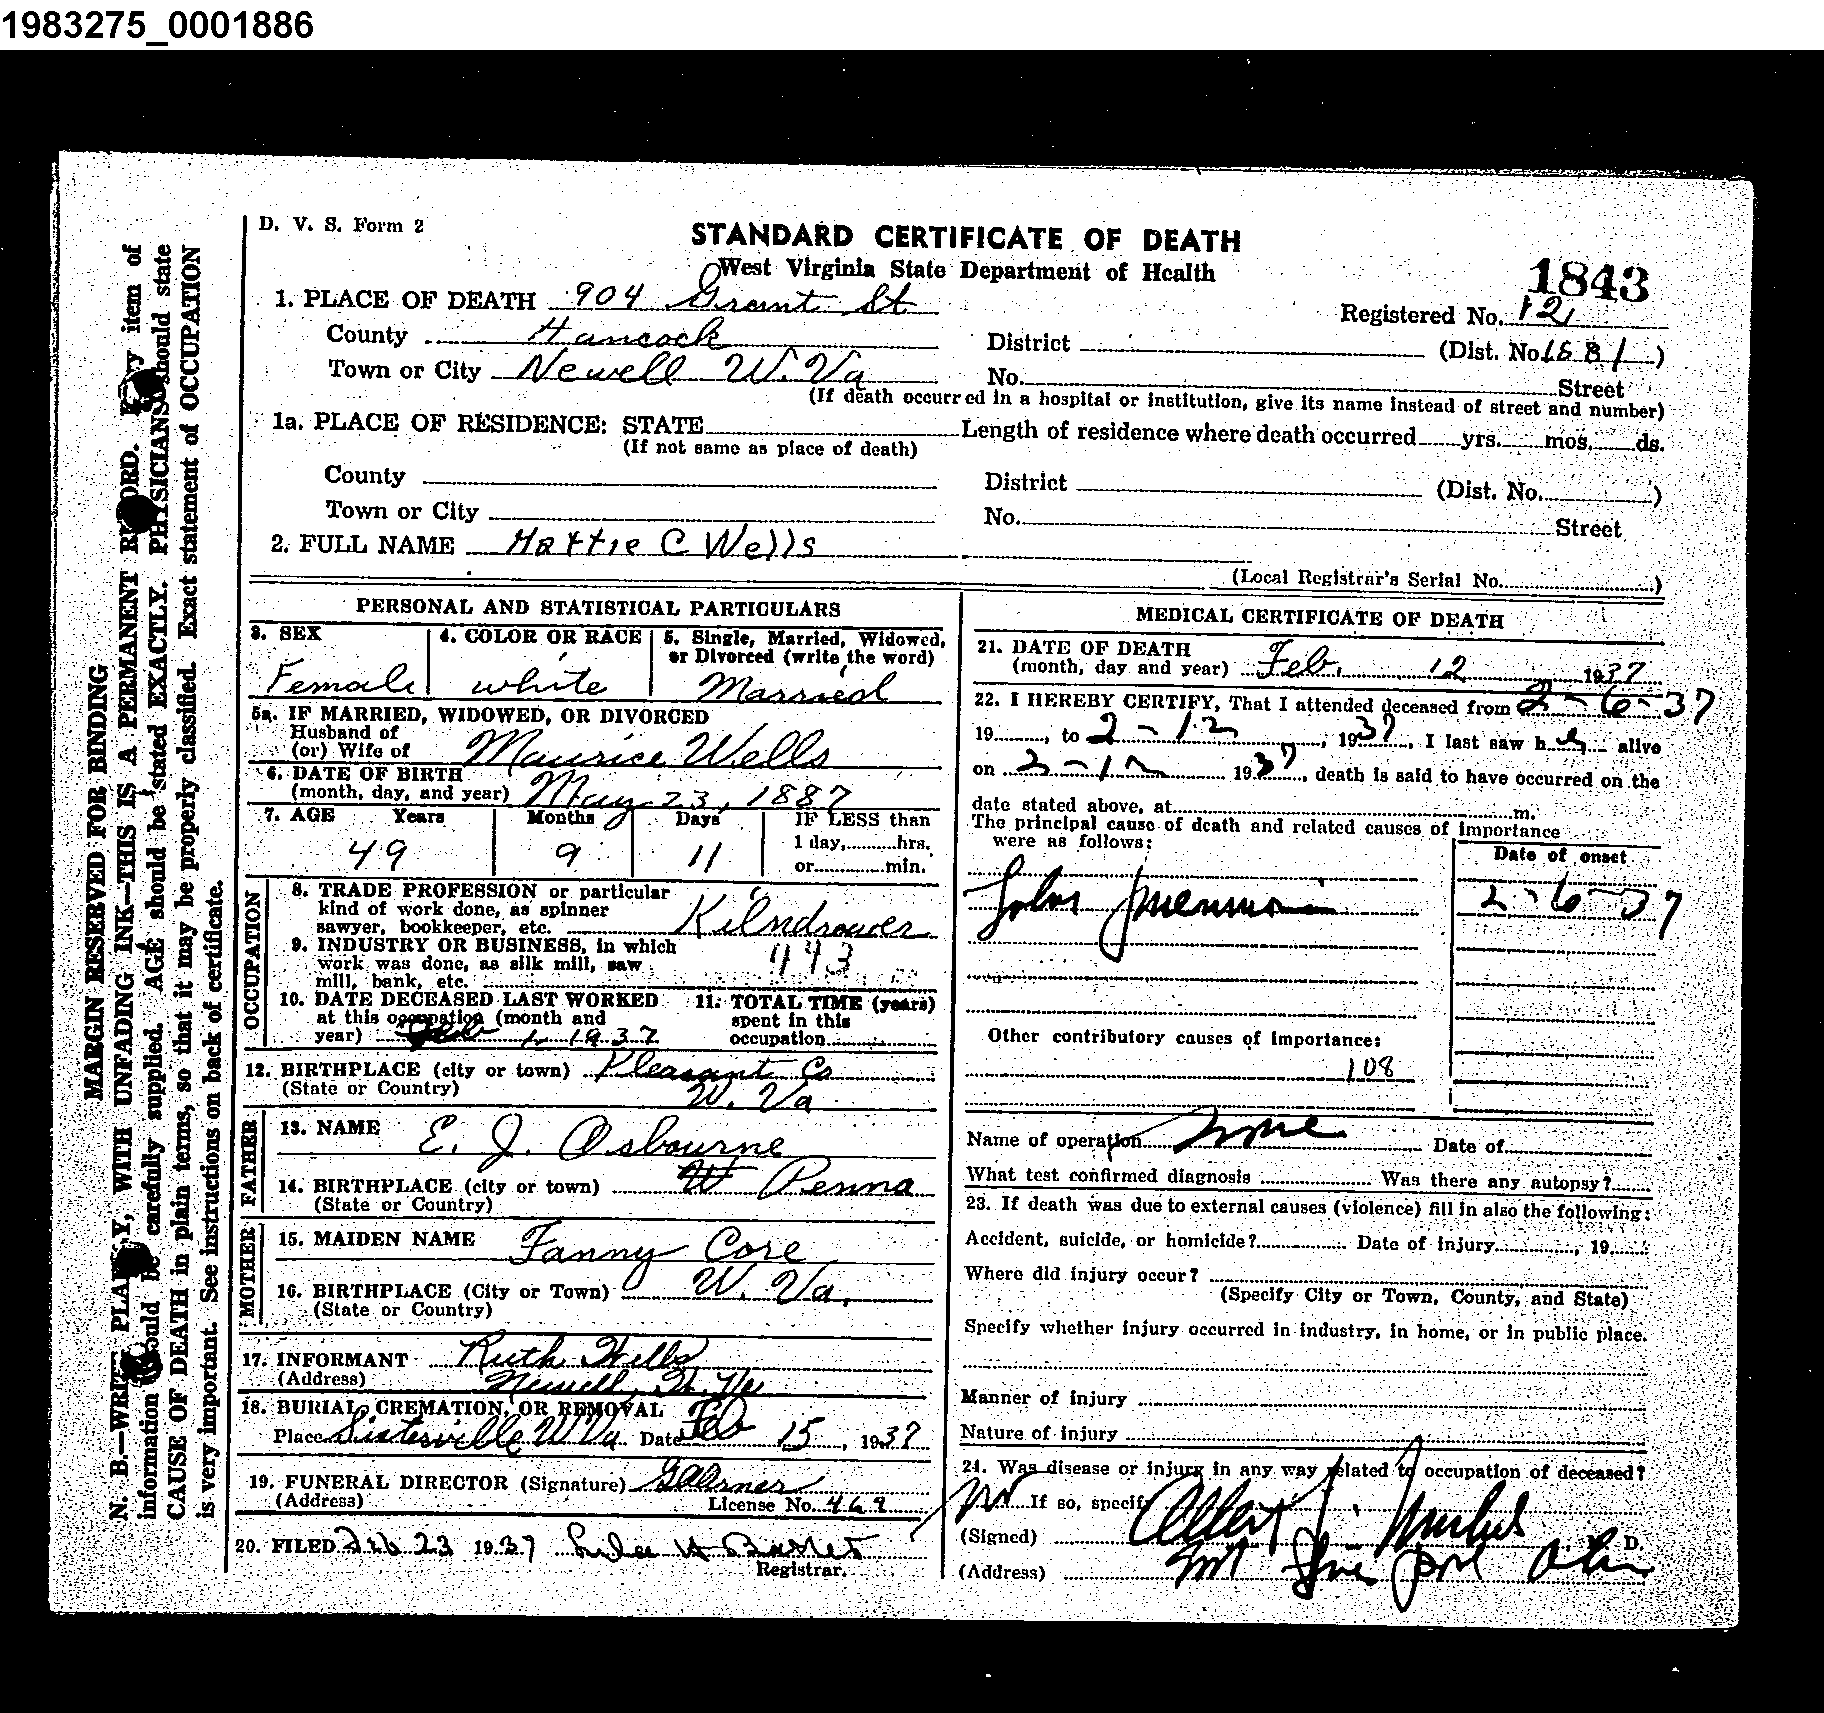 1983275_0001886
D. V. S. Form 2
STANDARD CERTIFICATE OF DEATH
West Virginia State Department of Health
1843
1. PLACE OF DEATH 904 Grant St
Registered No. 12
County Hancock
District (Dist. No. 1581)
Town or City Newell W. Va
No. Street
(If death occurred in a hospital or institution, give its name instead of street and number)
1a. PLACE OF RESIDENCE: STATE Length of residence where death occurred yrs. mos. ds.
(If not same as place of death)
County District (Dist. No. )
Town or City No. Street
2. FULL NAME Hattie C Wells
(Local Registrar's Serial No. )
PERSONAL AND STATISTICAL PARTICULARS
3. SEX
Female
4. COLOR OR RACE
white
5. Single, Married, Widowed,
or Divorced (write the word)
Married
5a. IF MARRIED, WIDOWED, OR DIVORCED
Husband of
(or) Wife of Maurice Wells
6. DATE OF BIRTH
(month, day, and year) May 23, 1887
7. AGE Years Months Days IF LESS than
1 day, hrs.
or min.
49 9 11
OCCUPATION
8. TRADE PROFESSION or particular
kind of work done, as spinner
sawyer, bookkeeper, etc. Kilndrawer
9. INDUSTRY OR BUSINESS, in which
work was done, as silk mill, saw
mill, bank, etc. 443
10. DATE DECEASED LAST WORKED
at this occupation (month and
year) Feb 1, 1937
11. TOTAL TIME (years)
spent in this
occupation
12. BIRTHPLACE (city or town) Pleasant Co
(State or Country) W. Va
FATHER
13. NAME E. J. Osbourne
14. BIRTHPLACE (city or town) W Penna
(State or Country)
MOTHER
15. MAIDEN NAME Fanny Core
16. BIRTHPLACE (City or Town) W. Va.
(State or Country)
17. INFORMANT Ruth Wells
(Address) Newell, W. Va
18. BURIAL, CREMATION, OR REMOVAL
Place Sistersville W Va Date Feb 15, 1937
19. FUNERAL DIRECTOR (Signature)
(Address) License No. 469
20. FILED Feb 23 1937
Registrar.
MEDICAL CERTIFICATE OF DEATH
21. DATE OF DEATH
(month, day and year) Feb. 12 1937
22. I HEREBY CERTIFY, That I attended deceased from 2-6-37
19 , to 2-12, 1937, I last saw her alive
on 2-12 1937, death is said to have occurred on the
date stated above, at m.
The principal cause of death and related causes of importance
were as follows:
Date of onset
Lobar Pneumonia 2-6-37
Other contributory causes of importance:
108
Name of operation None Date of
What test confirmed diagnosis Was there any autopsy?
23. If death was due to external causes (violence) fill in also the following:
Accident, suicide, or homicide? Date of injury , 19
Where did injury occur?
(Specify City or Town, County, and State)
Specify whether injury occurred in industry, in home, or in public place.
Manner of injury
Nature of injury
24. Was disease or injury in any way related to occupation of deceased?
no If so, specify
(Signed) Albert J. M. D.
(Address)
MARGIN RESERVED FOR BINDING
N. B.—WRITE PLAINLY, WITH UNFADING INK—THIS IS A PERMANENT RECORD. Every item of
information should be carefully supplied. AGE should be stated EXACTLY. PHYSICIANS should state
CAUSE OF DEATH in plain terms, so that it may be properly classified. Exact statement of OCCUPATION
is very important. See instructions on back of certificate.